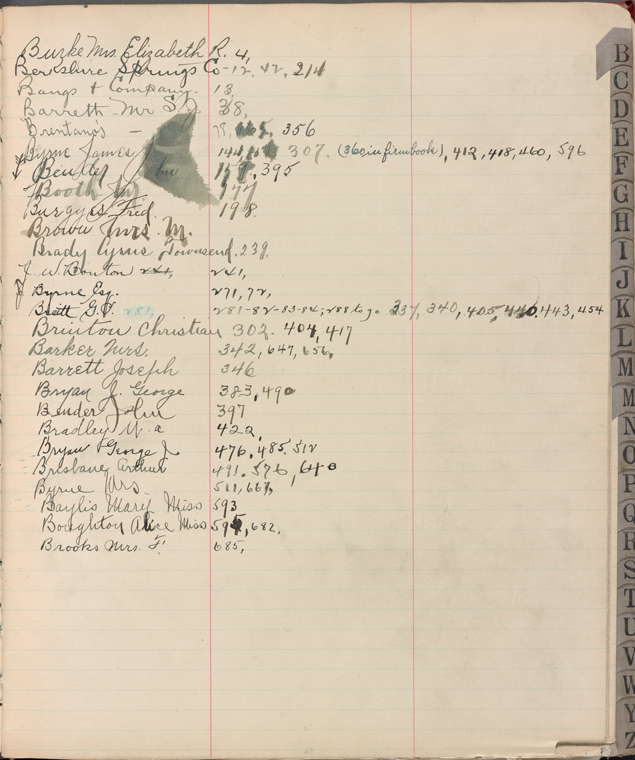 Burke Mrs Elizabeth R. 4,
Berkshire Springs Co - 12, 42, 214
Bangs & Company. 13,
Barrett Mr S. J. 38,
Brentano's - 356
Byrne James 307. (360 in firm book), 412, 418, 460, 596
Bentley John 395
Booth 177
Burgess Fred. 198.
Brown Mrs. M.
Brady Cyrus Townsend. 239.
J. W. Bouton 241, 241,
J Byrne Esq. 271, 72,
Brett G. P. 281, 281-82-83-84; 288 to 90 337, 340, 405, 440, 443, 454
Brinton Christian 302. 404, 417
Barker Mrs. 342, 647, 656,
Barrett Joseph 346
Bryan J. George 383, 490
Bender John 397
Bradley W. a 422,
Bryan George J. 476, 485, 512
Brisbane Arthur 491. 576, 640
Byrne Mrs 511, 667,
Baylis Mary Miss 593
Boughton Alice Miss 595, 682,
Brooks Mrs. F. 685,
B
C
D
E
F
G
H
I
J
K
L
M
M
N
O
P
Q
R
S
T
U
V
W
Y
Z